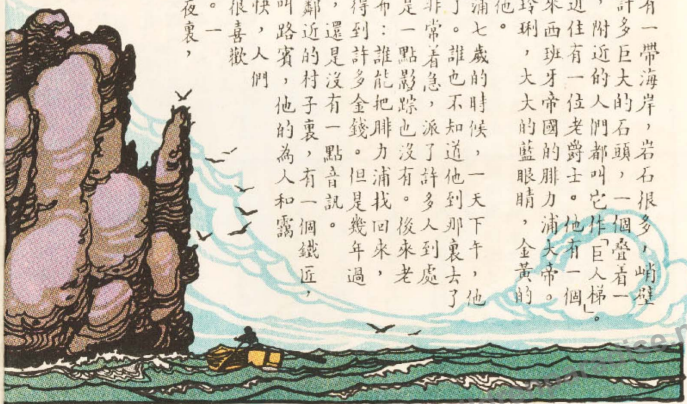 有一帶海岸，岩石很多，峭壁
許多巨大的石頭，一個疊着一
，附近的人們都叫它作「巨人梯」。
近住有一位老爵士。他有一個
來西班牙帝國的腓力浦大帝。
玲琍，大大的藍眼睛，金黃的
他。
浦七歲的時候，一天下午，他
了。誰也不知道他到那裏去了
非常着急，派了許多人到處
是一點影踪也沒有。後來老
布：誰能把腓力浦找回來，
得到許多金錢。但是幾年過
，還是沒有一點音訊。
鄰近的村子裏，有一個鐵匠，
叫路賓，他的為人和靄
快，人們
很喜歡
。一
夜裏，